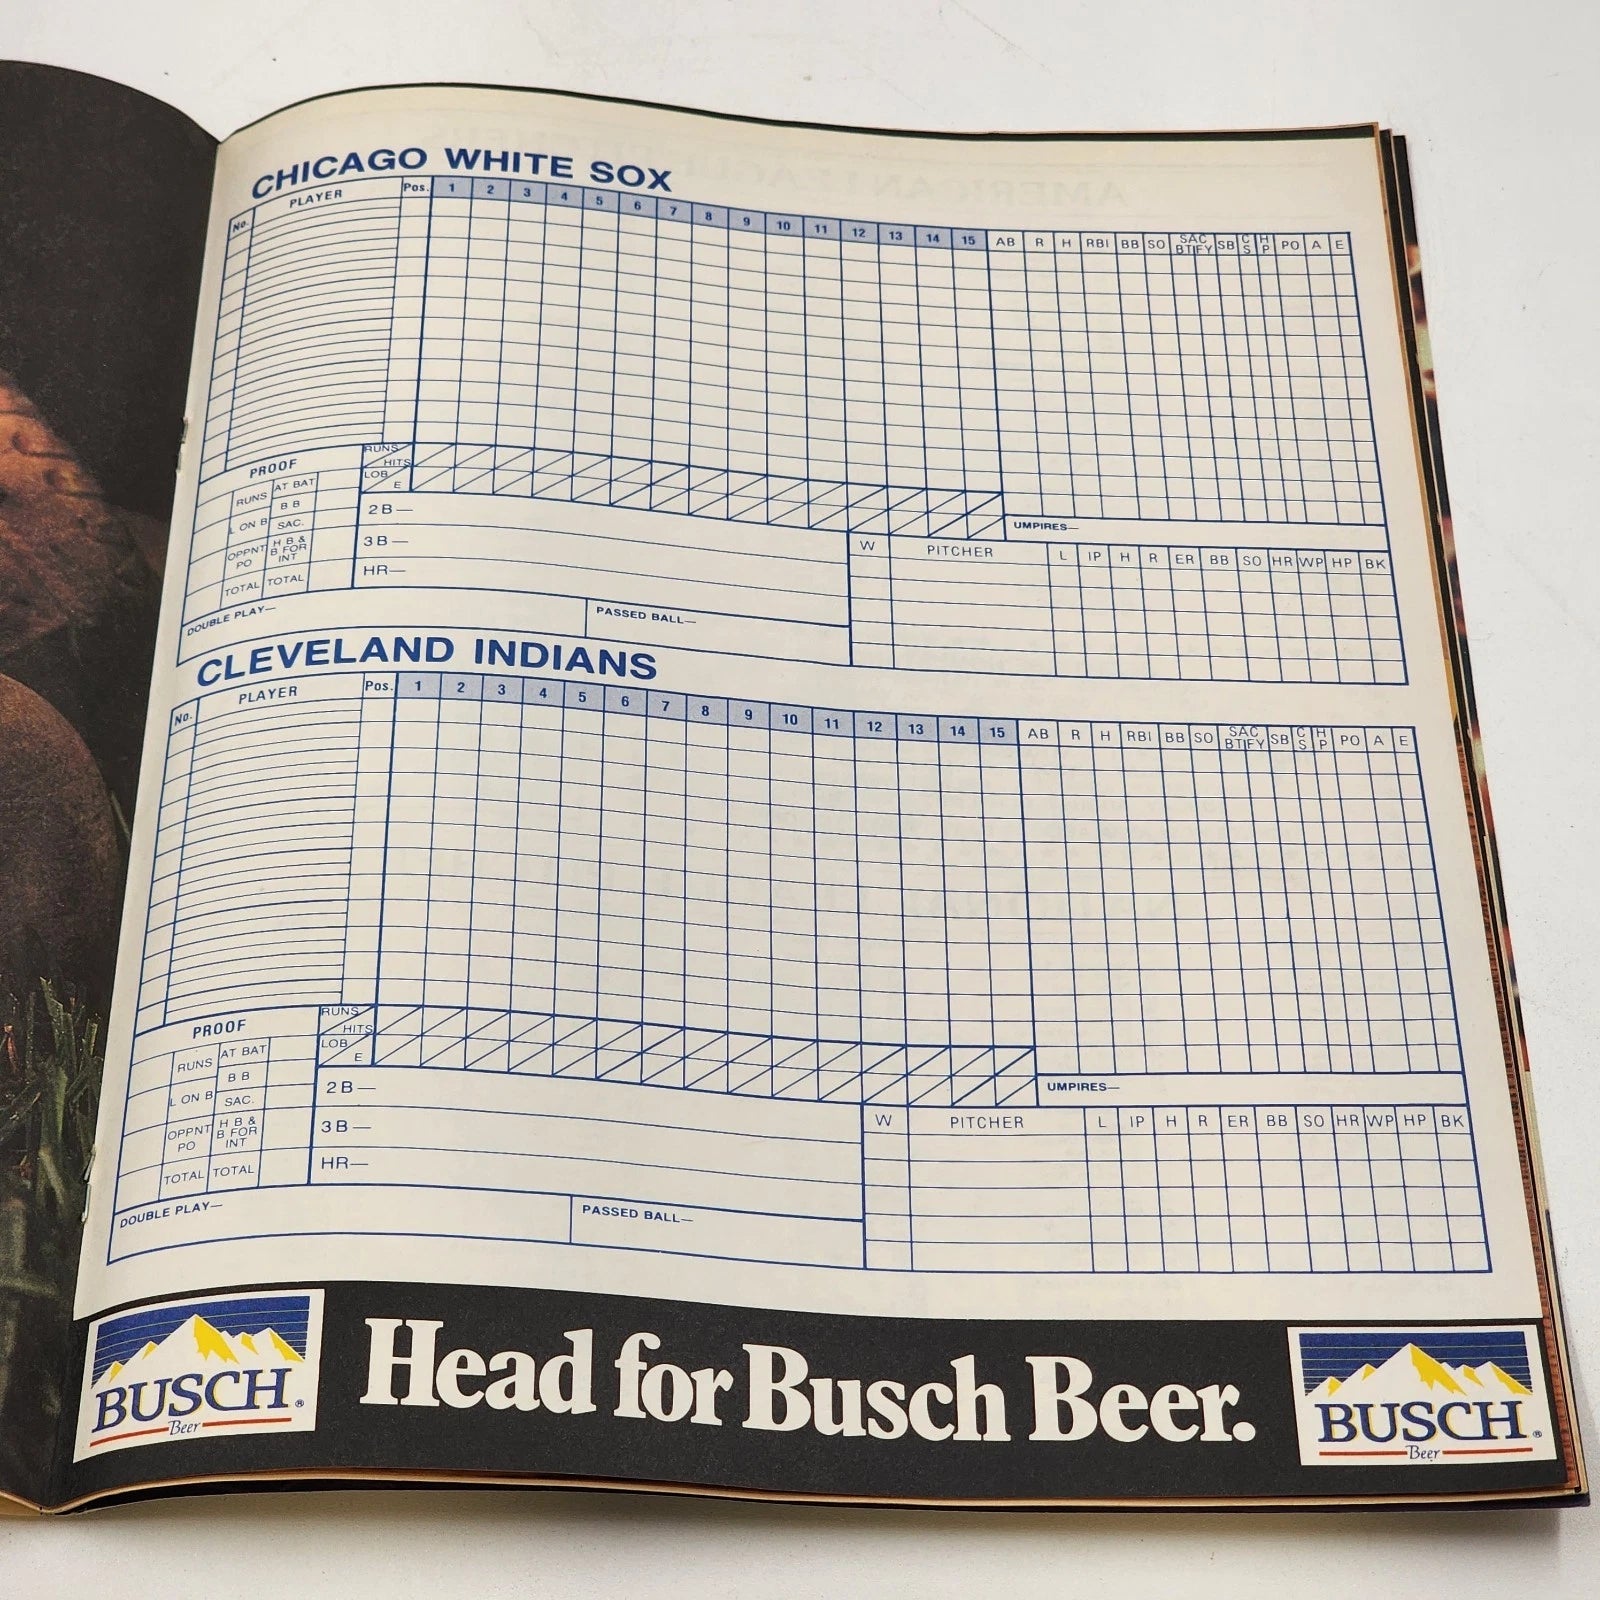 CHICAGO WHITE SOX
No. PLAYER Pos. 1 2 3 4 5 6 7 8 9 10 11 12 13 14 15 AB R H RBI BB SO SAC BT FY SB CS HP PO A E
PROOF
RUNS HITS
LOB E
RUNS AT BAT
B B
L ON B SAC.
OPPNT PO H B & B FOR INT
TOTAL TOTAL
2B—
3B—
HR—
UMPIRES—
W PITCHER L IP H R ER BB SO HR WP HP BK
DOUBLE PLAY—
PASSED BALL—
CLEVELAND INDIANS
No. PLAYER Pos. 1 2 3 4 5 6 7 8 9 10 11 12 13 14 15 AB R H RBI BB SO SAC BT FY SB CS HP PO A E
PROOF
RUNS HITS
LOB E
RUNS AT BAT
B B
L ON B SAC.
OPPNT PO H B & B FOR INT
TOTAL TOTAL
2B—
3B—
HR—
UMPIRES—
W PITCHER L IP H R ER BB SO HR WP HP BK
DOUBLE PLAY—
PASSED BALL—
BUSCH®
Beer
Head for Busch Beer.
BUSCH®
Beer